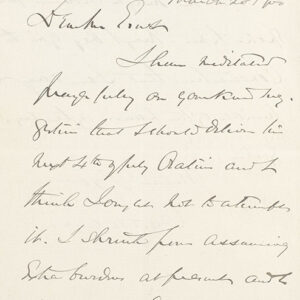 March
Dear Mr
I have meditated
prayerfully on your kind sug-
gestion that I should deliver the
next 4th of July Oration and I
think I ought not to attempt
it. I shrink from assuming
extra burdens at present and